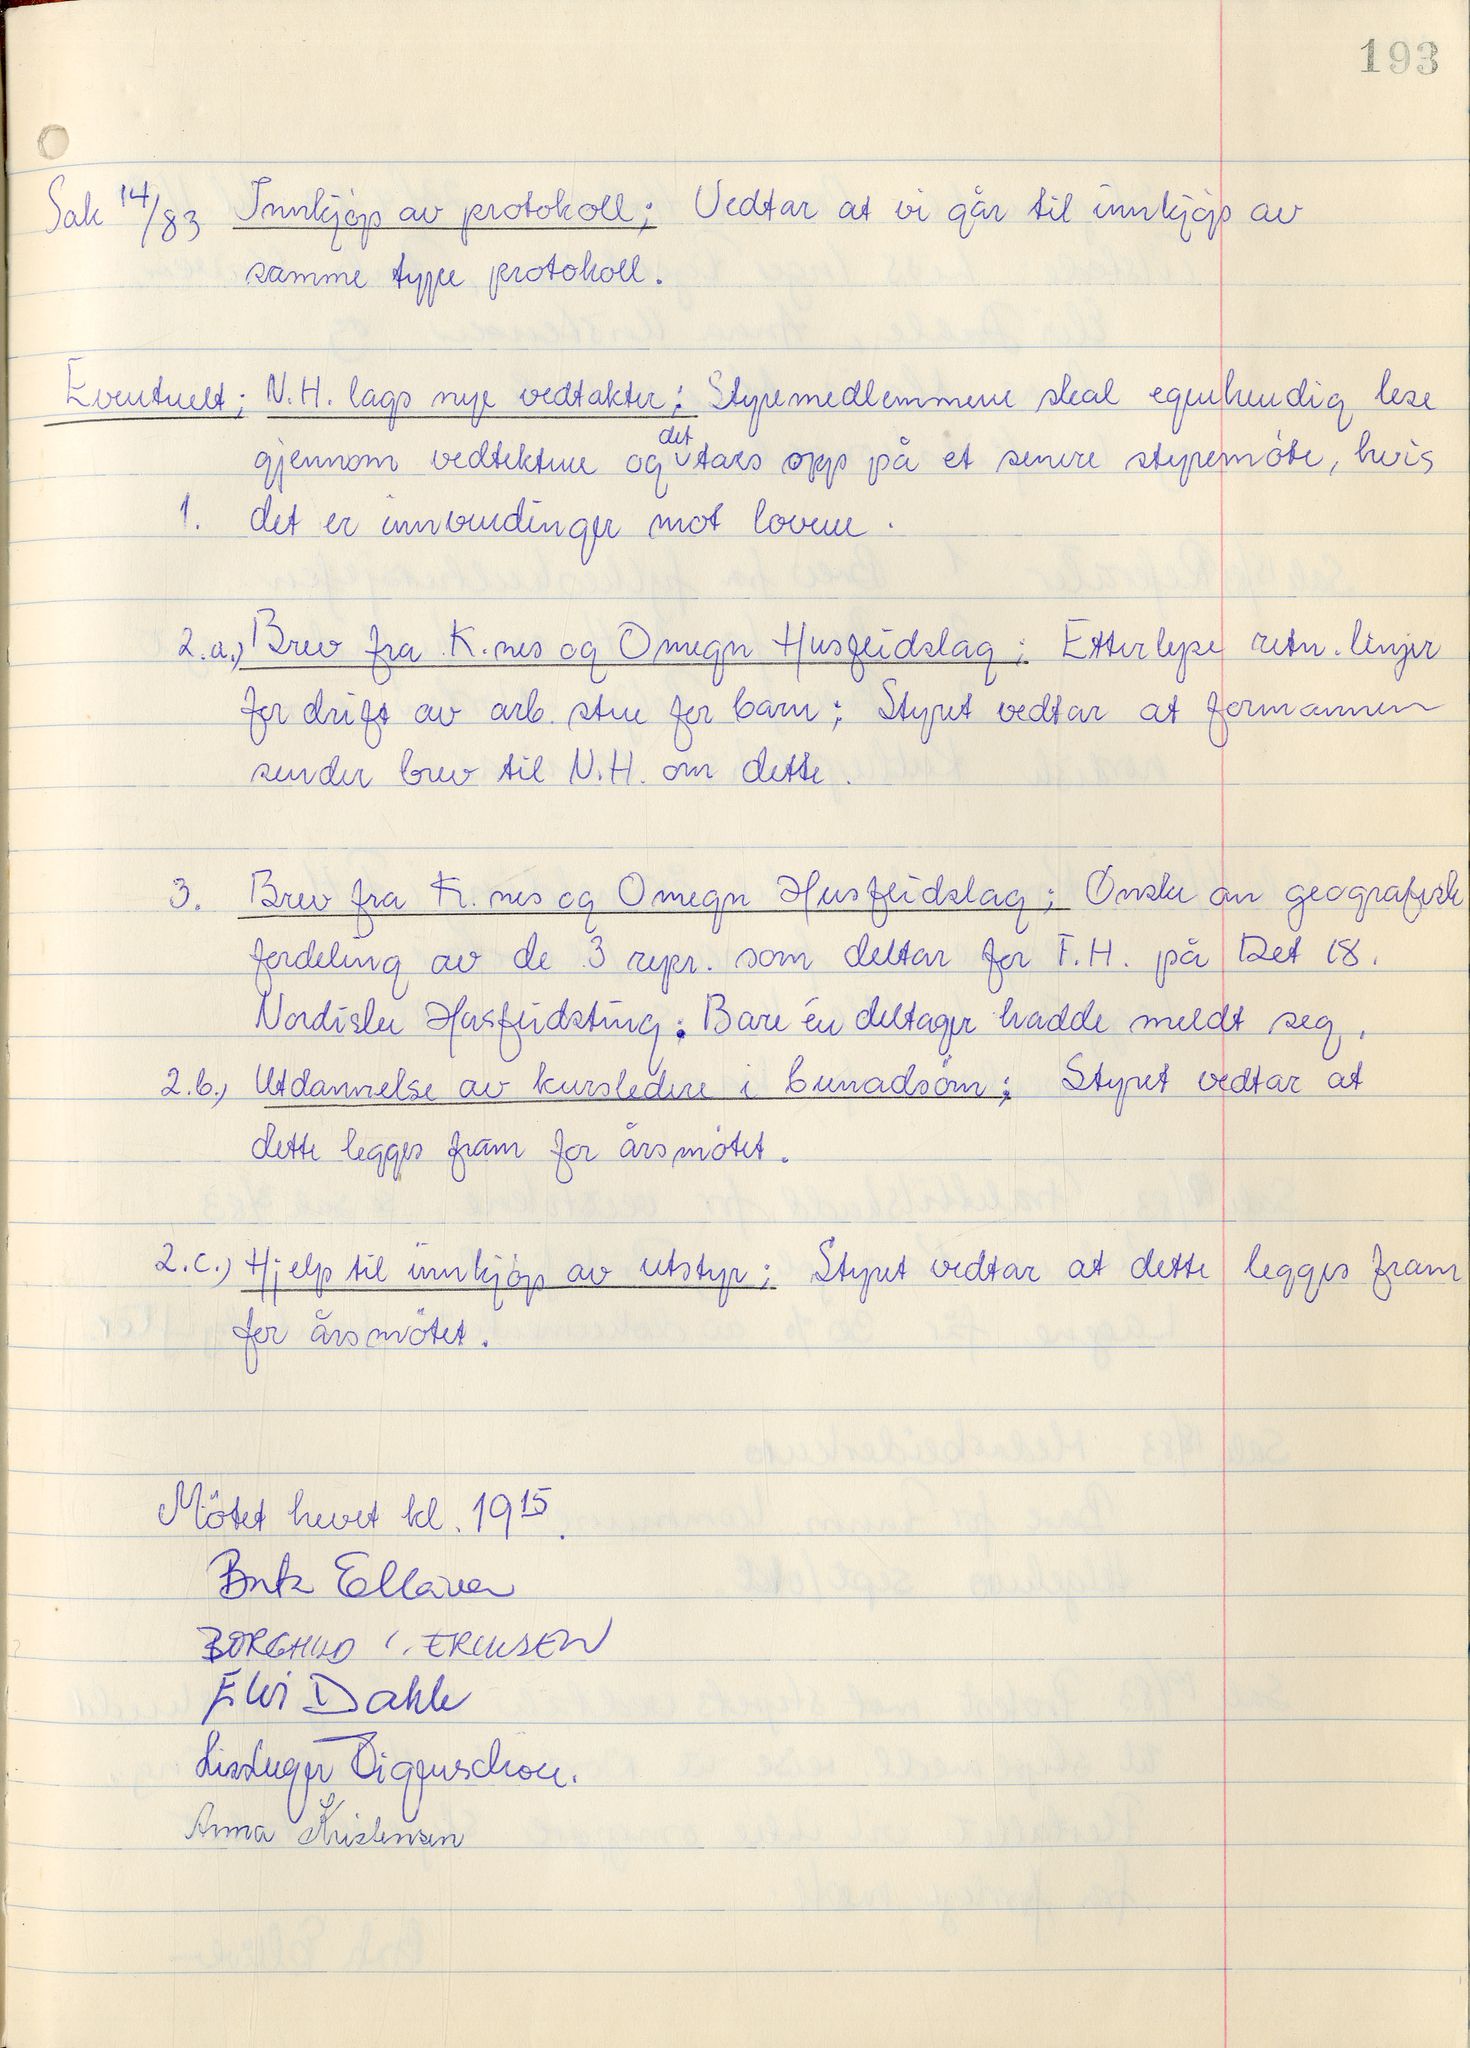 193
Sak 14/83 Innkjøp av protokoll; Vedtar at vi går til innkjøp av
samme type protokoll.
Eventuelt; N.H. lags nye vedtakter; Styremedlemmene skal egenhendig lese
gjennom vedtektene og det tars opp på et senere styremöte, hvis
1. det er innvendinger mot lovene.
2.a.) Brev fra K.nes og Omegn Husflidslag; Etterlyse retn.linjer
for drift av arb. stue for barn; Styret vedtar at formannen
sender brev til N.H. om dette.
3. Brev fra K.nes og Omegn Husflidslag; Ønske om geografisk
fordeling av de 3 repr. som deltar for F.H. på Det 18.
Nordiske Husflidsting; Bare én deltager hadde meldt seg.
2.b.) Utdannelse av kursledere i bunadsöm; Styret vedtar at
dette legges fram for årsmötet.
2.c.) Hjelp til innkjøp av utstyr; Styret vedtar at dette legges fram
for årsmötet.
Mötet hevet kl. 19 15.
Ellavn
BORGHILD ERIKSEN
Elvi Dahle
Anna Kristensen